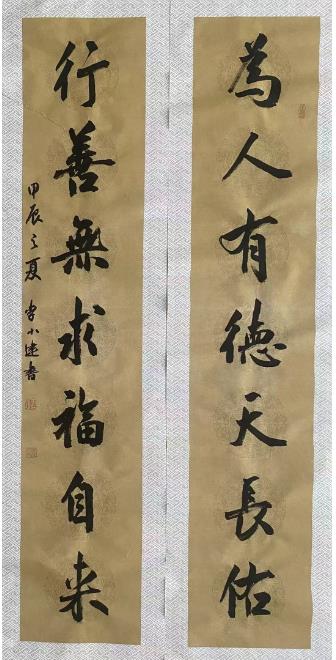 為人有德天長佑
行善無求福自来
甲辰之夏 李小建書